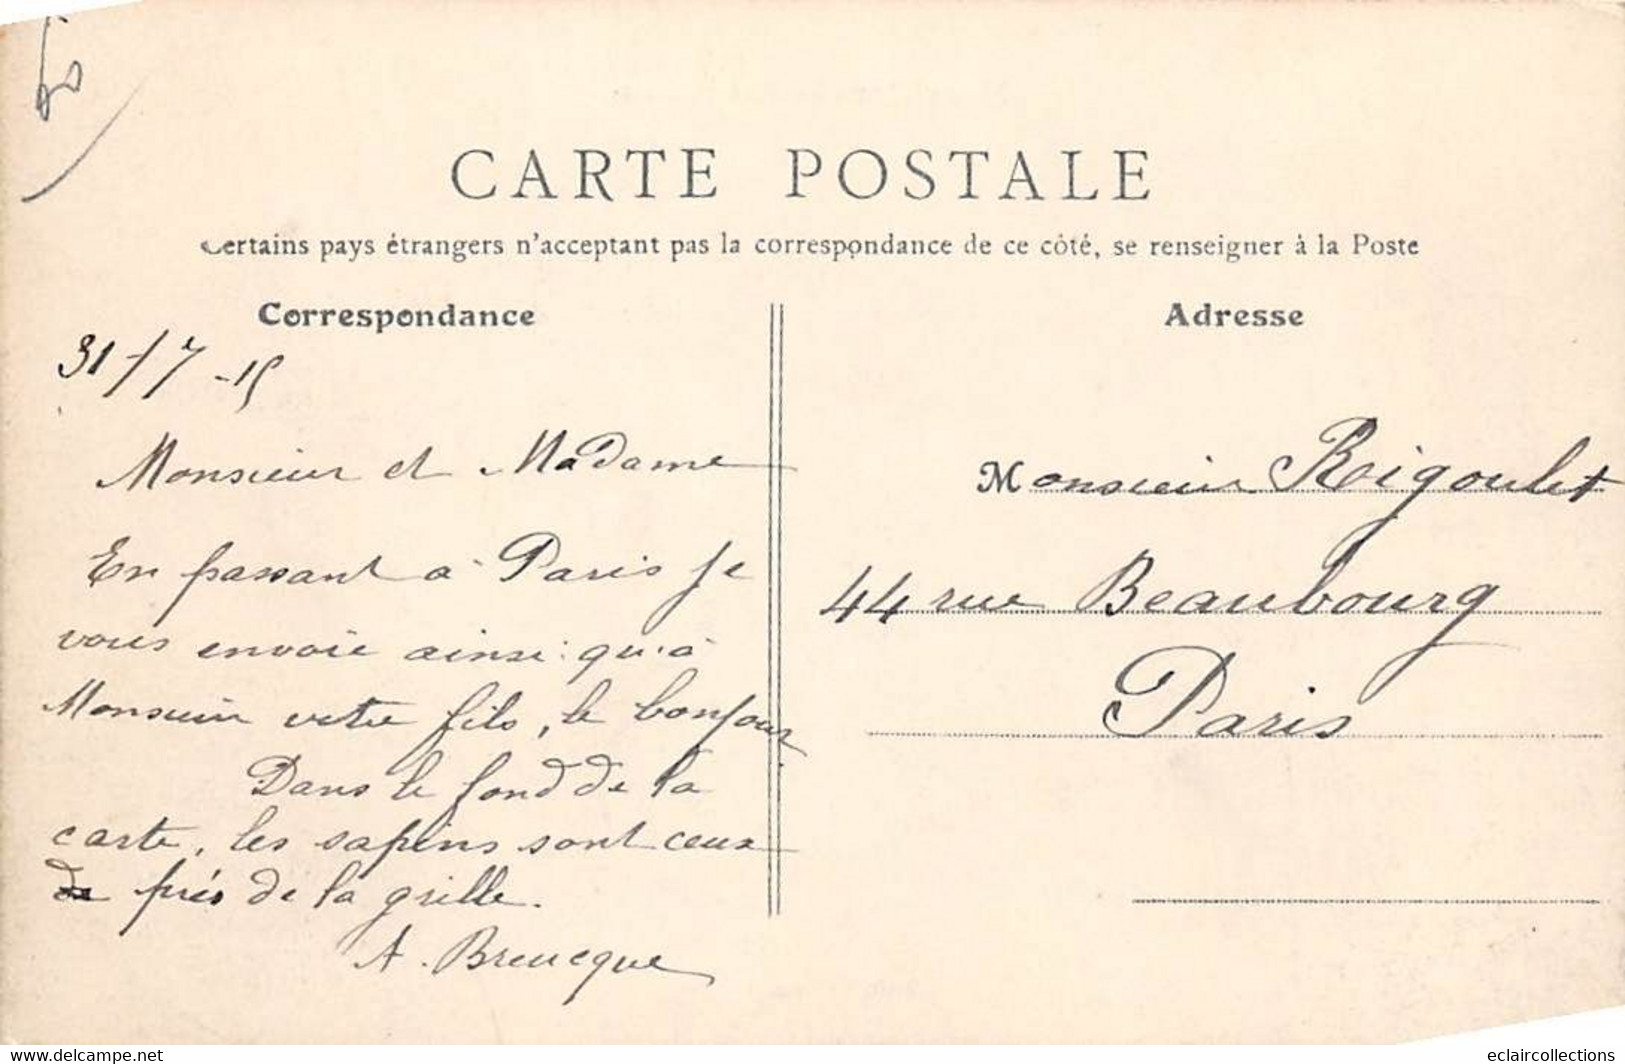 CARTE POSTALE
Certains pays étrangers n'acceptant pas la correspondance de ce côté, se renseigner à la Poste
Correspondance
31/7-15
Monsieur et Madame
En passant à Paris je
vous envoie ainsi qu'à
Monsieur votre fils, le bonjour
Dans le fond de la
carte, les sapins sont ceux
de près de la grille.
A. Breucque
Adresse
Monsieur Rigoulet
44 rue Beaubourg
Paris
www.delcampe.net
eclaircollections